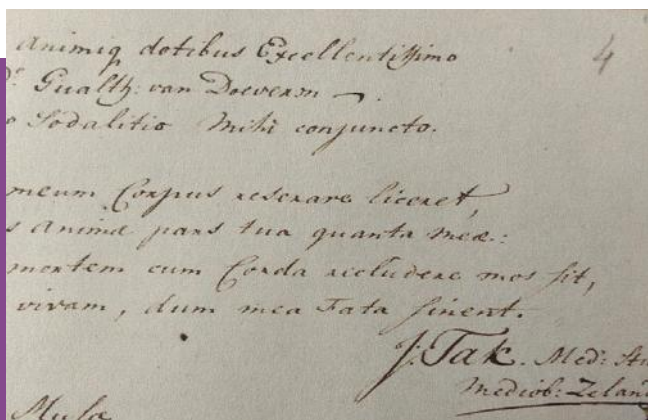 animiq dotibus Excellentissimo
4
D: Gualth: van Doeveren
o Sodalitio Mihi conjuncto.
meum Corpus reserare liceret,
s animæ pars tua quanta meæ:
mortem cum Corda recludere mos sit,
vivam, dum mea Fata sinent.
J: Tak. Med: Stu
Mediob: Zeland
Musa